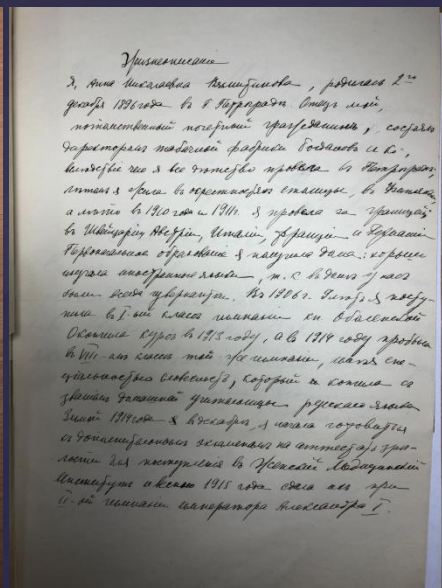 Жизнеописание
Я, Анна Николаевна, родилась 2го
декабря 1896 года въ г. Петрограде. Отецъ мой,
потомственный почетный гражданинъ, состоялъ
директоромъ табачной фабрики Богдановъ и Ко,
вследствіе чего я все детство провела въ Петрограде
летомъ я жила въ окрестностяхъ столицы, въ
а лето въ 1910 году и 1911г. я провела за границей
въ Швейцаріи, Австріи, Италіи, Франціи и Германіи
Первоначальное образование я получила дома: хорошо
изучала иностранные языки, т.к. въ доме у насъ
были всегда гувернантки. Въ 1906г. я посту-
пила въ I-ый классъ гимназіи кн. Оболенской
Окончила курсъ въ 1913 году, а въ 1914 году пробыла
въ VIII-омъ классе той же гимназіи, имея спе-
ціальностью словесность, который и кончила со
званіемъ домашней учительницы русскаго языка
Зимой 1914 года я въ декабре, начала готовиться
къ дополнительнымъ экзаменамъ на аттестатъ зре-
лости для поступленія въ Женскій Медицинскій
Институтъ и весною 1915 года сдала ихъ при
II-ой гимназіи императора Александра I.